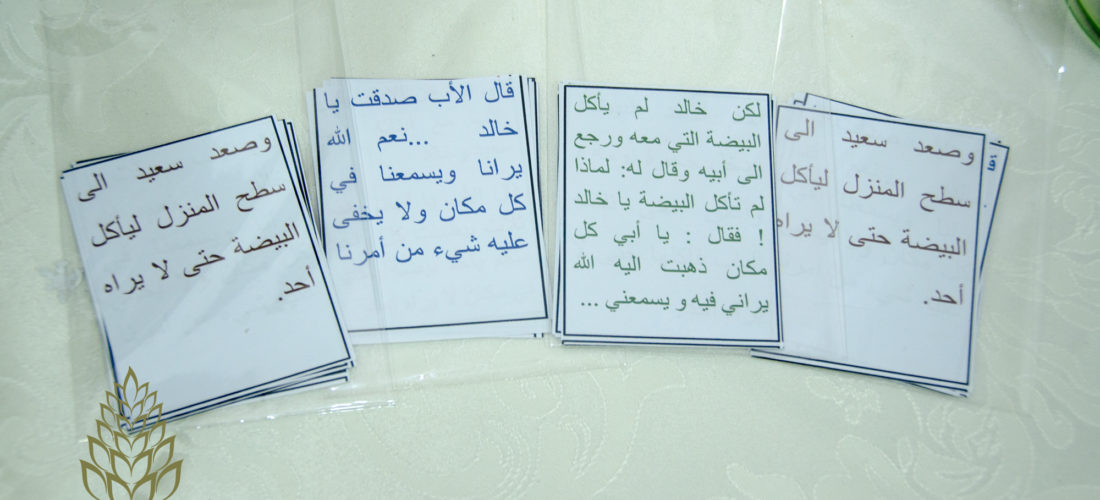 وصعد سعيد الى
سطح المنزل ليأكل
البيضة حتى لا يراه
أحد.
لكن خالد لم يأكل
البيضة التي معه ورجع
الى أبيه وقال له: لماذا
لم تأكل البيضة يا خالد
! فقال : يا أبي كل
مكان ذهبت اليه الله
يراني فيه و يسمعني ...
قال الأب صدقت يا
خالد ...نعم الله
يرانا ويسمعنا في
كل مكان ولا يخفى
عليه شيء من أمرنا
وصعد سعيد الى
سطح المنزل ليأكل
البيضة حتى لا يراه
أحد.